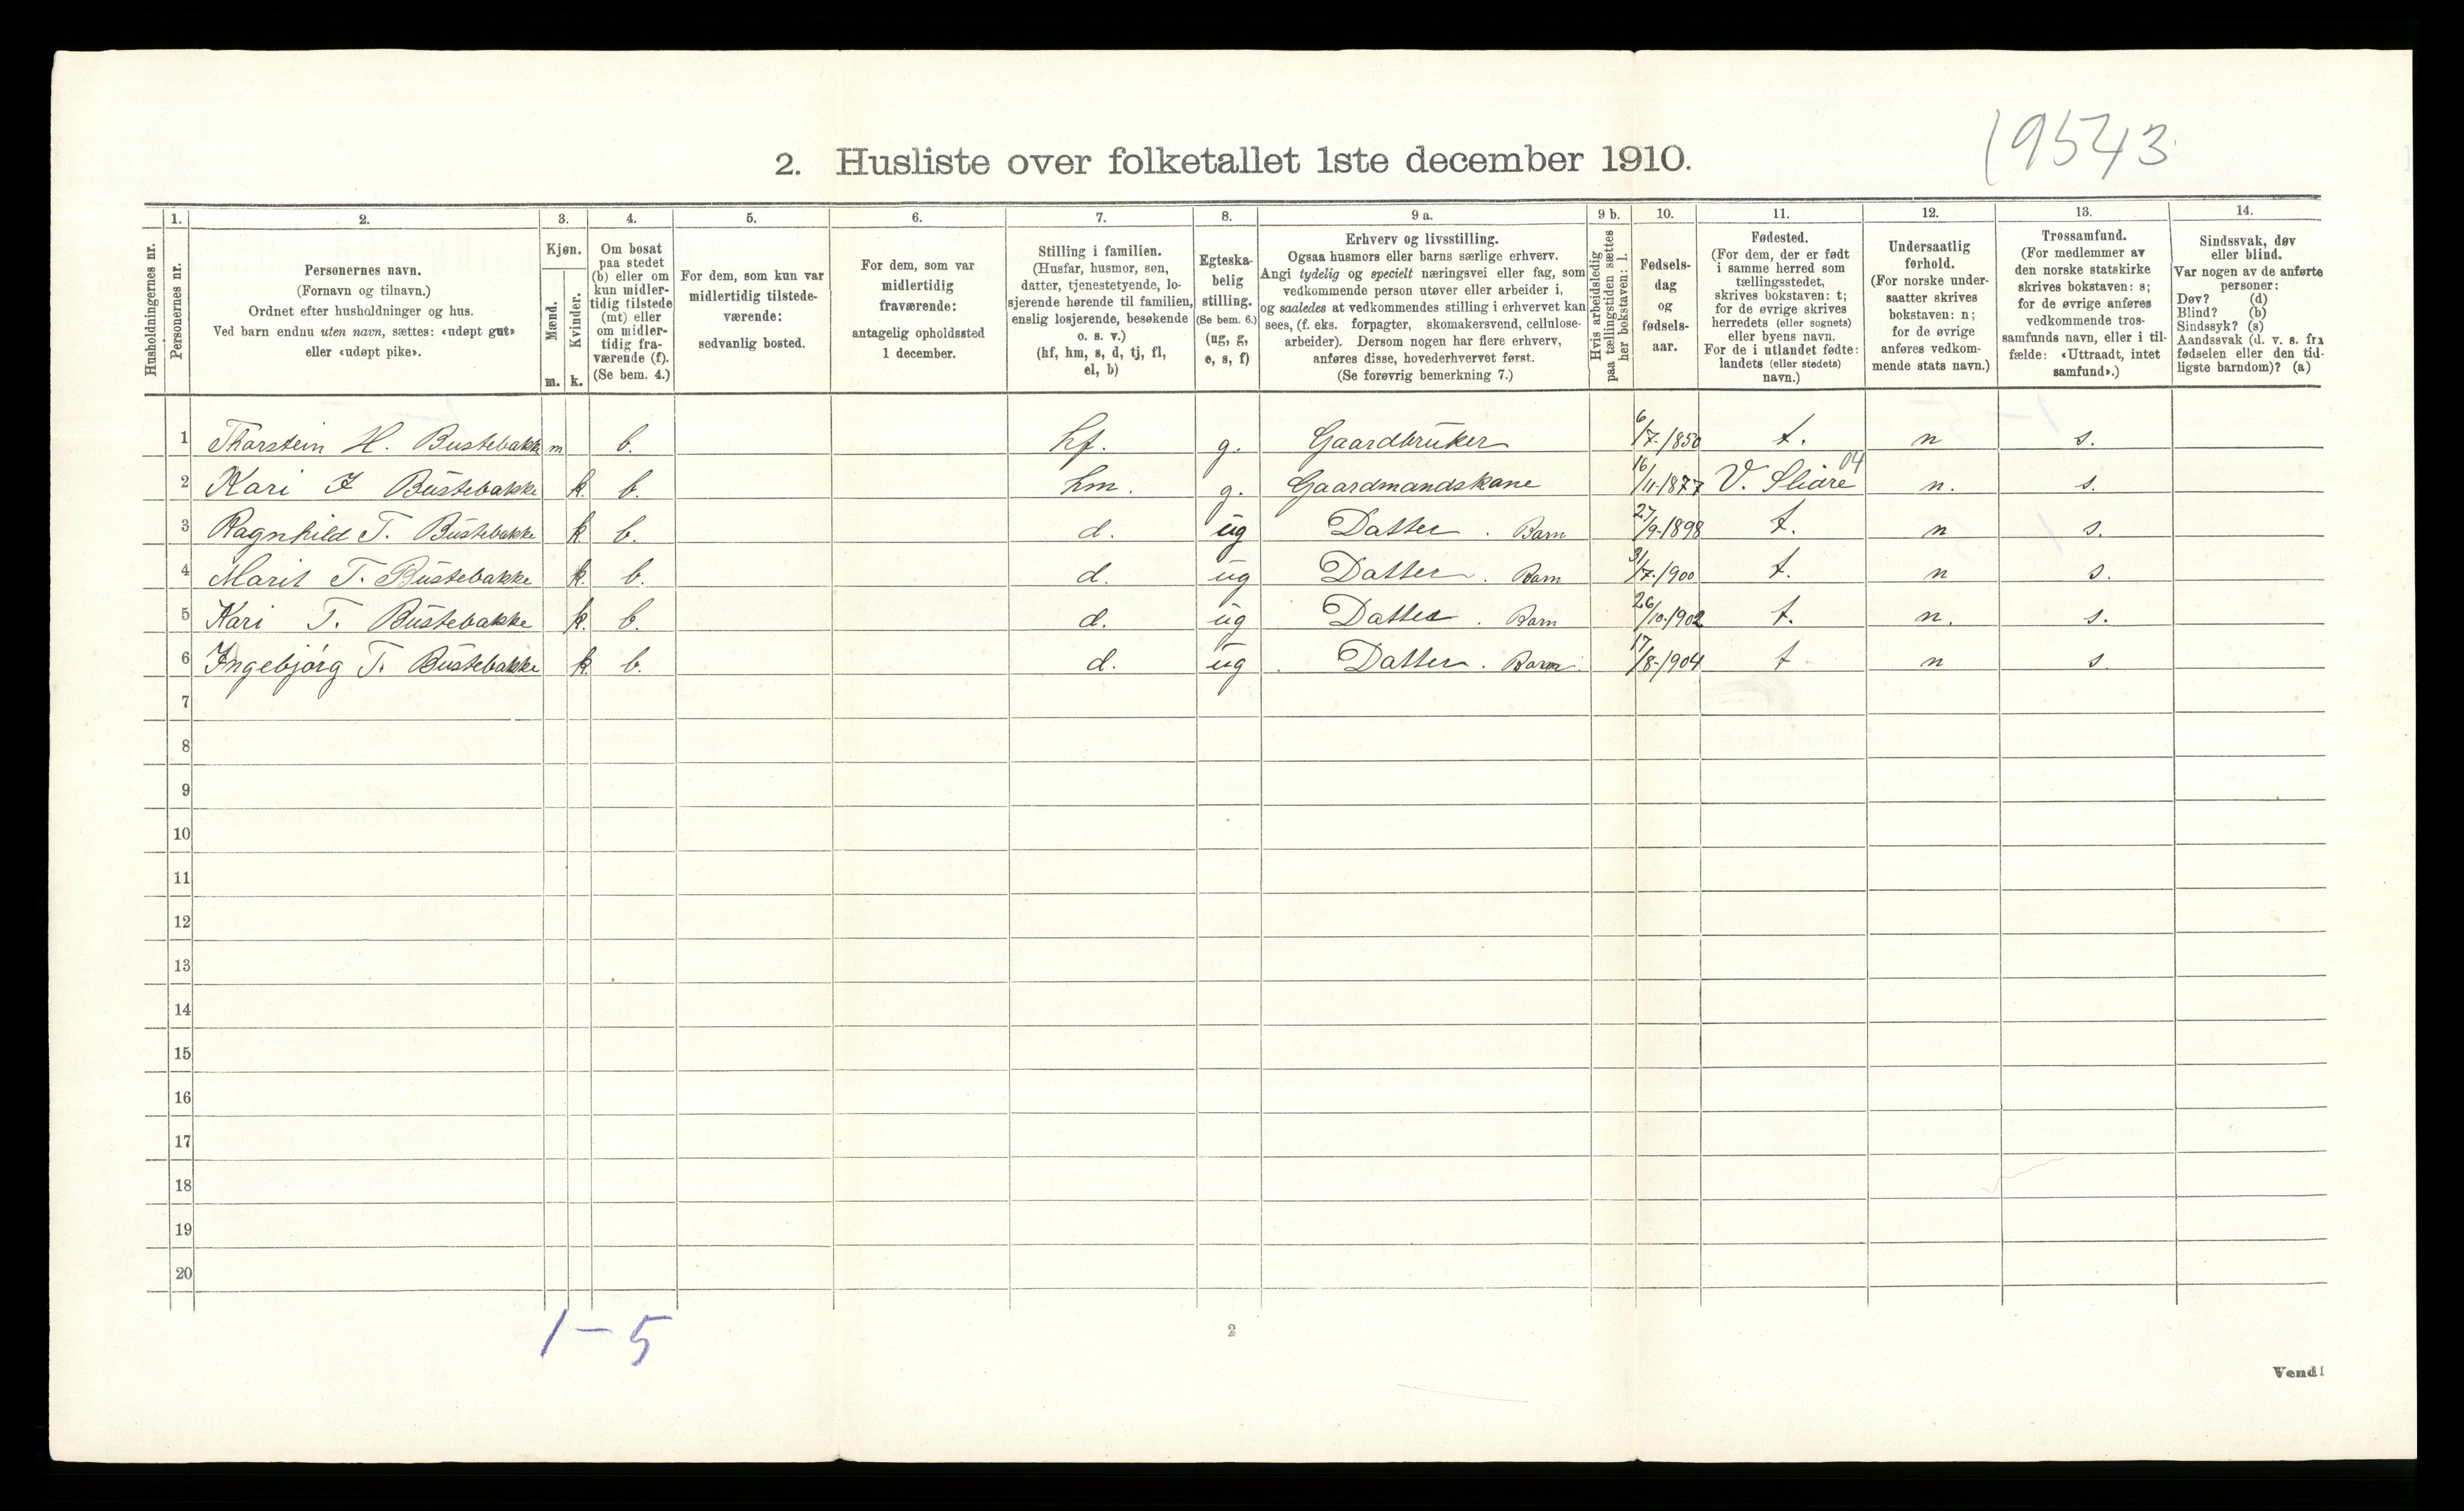 19543
2. Husliste over folketallet 1ste december 1910.
Husholdningernes nr.
1.
Personernes nr.
2.
Personernes navn.
(Fornavn og tilnavn.)
Ordnet efter husholdninger og hus.
Ved barn endnu uten navn, sættes: «udøpt gut»
eller «udøpt pike».
3.
Kjøn.
Mænd.
Kvinder.
m. k.
4.
Om bosat
paa stedet
(b) eller om
kun midler-
tidig tilstede
(mt) eller
om midler-
tidig fra-
værende (f).
(Se bem. 4.)
5.
For dem, som kun var
midlertidig tilstede-
værende:
sedvanlig bosted.
6.
For dem, som var
midlertidig
fraværende:
antagelig opholdssted
1 december.
7.
Stilling i familien.
(Husfar, husmor, søn,
datter, tjenestetyende, lo-
sjerende hørende til familien,
enslig losjerende, besøkende
o. s. v.)
(hf, hm, s, d, tj, fl,
el, b)
8.
Egteska-
belig
stilling.
(Se bem. 6.)
(ug, g,
e, s, f)
9 a.
Erhverv og livsstilling.
Ogsaa husmors eller barns særlige erhverv.
Angi tydelig og specielt næringsvei eller fag, som
vedkommende person utøver eller arbeider i,
og saaledes at vedkommendes stilling i erhvervet kan
sees, (f. eks. forpagter, skomakersvend, cellulose-
arbeider). Dersom nogen har flere erhverv,
anføres disse, hovederhvervet først.
(Se forøvrig bemerkning 7.)
9 b.
Hvis arbeidsledig
paa tællingstiden sættes
her bokstaven: l.
10.
Fødsels-
dag
og
fødsels-
aar.
11.
Fødested.
(For dem, der er født
i samme herred som
tællingsstedet,
skrives bokstaven: t;
for de øvrige skrives
herredets (eller sognets)
eller byens navn.
For de i utlandet fødte:
landets (eller stedets)
navn.)
12.
Undersaatlig
forhold.
(For norske under-
saatter skrives
bokstaven: n;
for de øvrige
anføres vedkom-
mende stats navn.)
13.
Trossamfund.
(For medlemmer av
den norske statskirke
skrives bokstaven: s;
for de øvrige anføres
vedkommende tros-
samfunds navn, eller i til-
fælde: «Uttraadt, intet
samfund».)
14.
Sindssvak, døv
eller blind.
Var nogen av de anførte
personer:
Døv? (d)
Blind? (b)
Sindssyk? (s)
Aandssvak (d. v. s. fra
fødselen eller den tid-
ligste barndom)? (a)
1 Thorstein H. Bustebakke m b. hf. g. Gaardbruker 6/7-1850 t. n s.
04
2 Kari I Bustebakke k. b. hm. g. Gaardmandskone 16/11-1877 V. Slidre n. s.
3 Ragnhild T. Bustebakke k b. d. ug Datter. Barn 27/9-1898 t. n s.
4 Marit T. Bustebakke k. b. d. ug Datter. Barn 31/7-1900 t. n s.
5 Kari T. Bustebakke k. b. d. ug Datter. Barn 26/10-1902 t. n. s.
6 Ingebjørg T. Bustebakke k. b. d. ug Datter. Barn. 17/8-1904 t n s.
7
8
9
10
11
12
13
14
15
16
17
18
19
20
1 – 5
2
Vend!